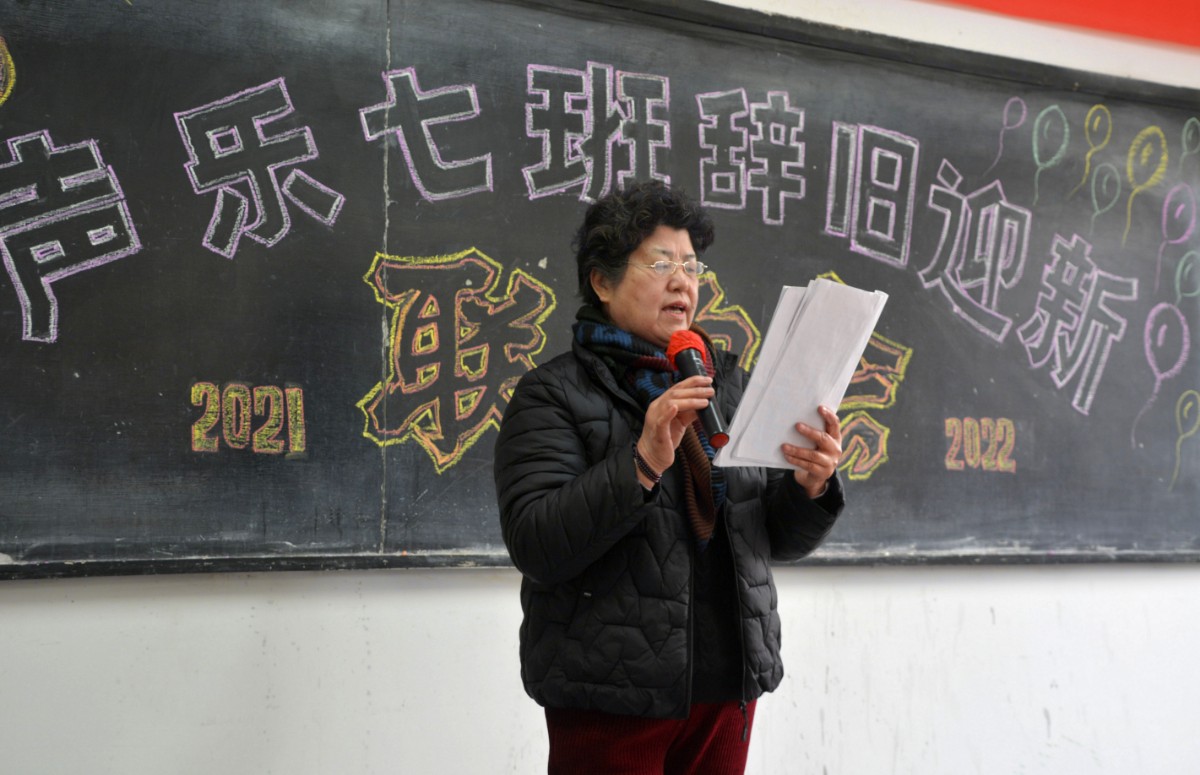 声乐七班辞旧迎新
联 会
2021
2022